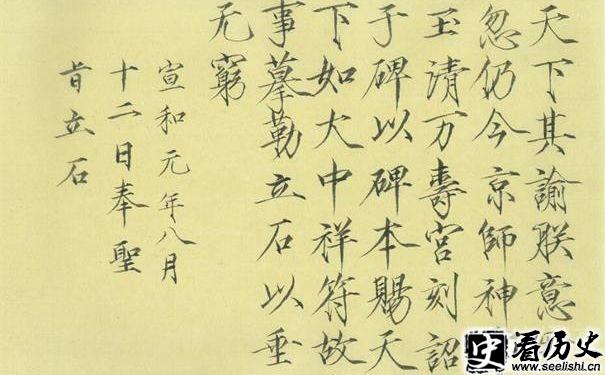 天下其諭朕意
忽仍令京師神
玉清万壽宮刻詔
于碑以碑本賜天
下如大中祥符故
事摹勒立石以垂
无窮
宣和元年八月
十二日奉聖
旨立石
史 看历史
www.seelishi.cn